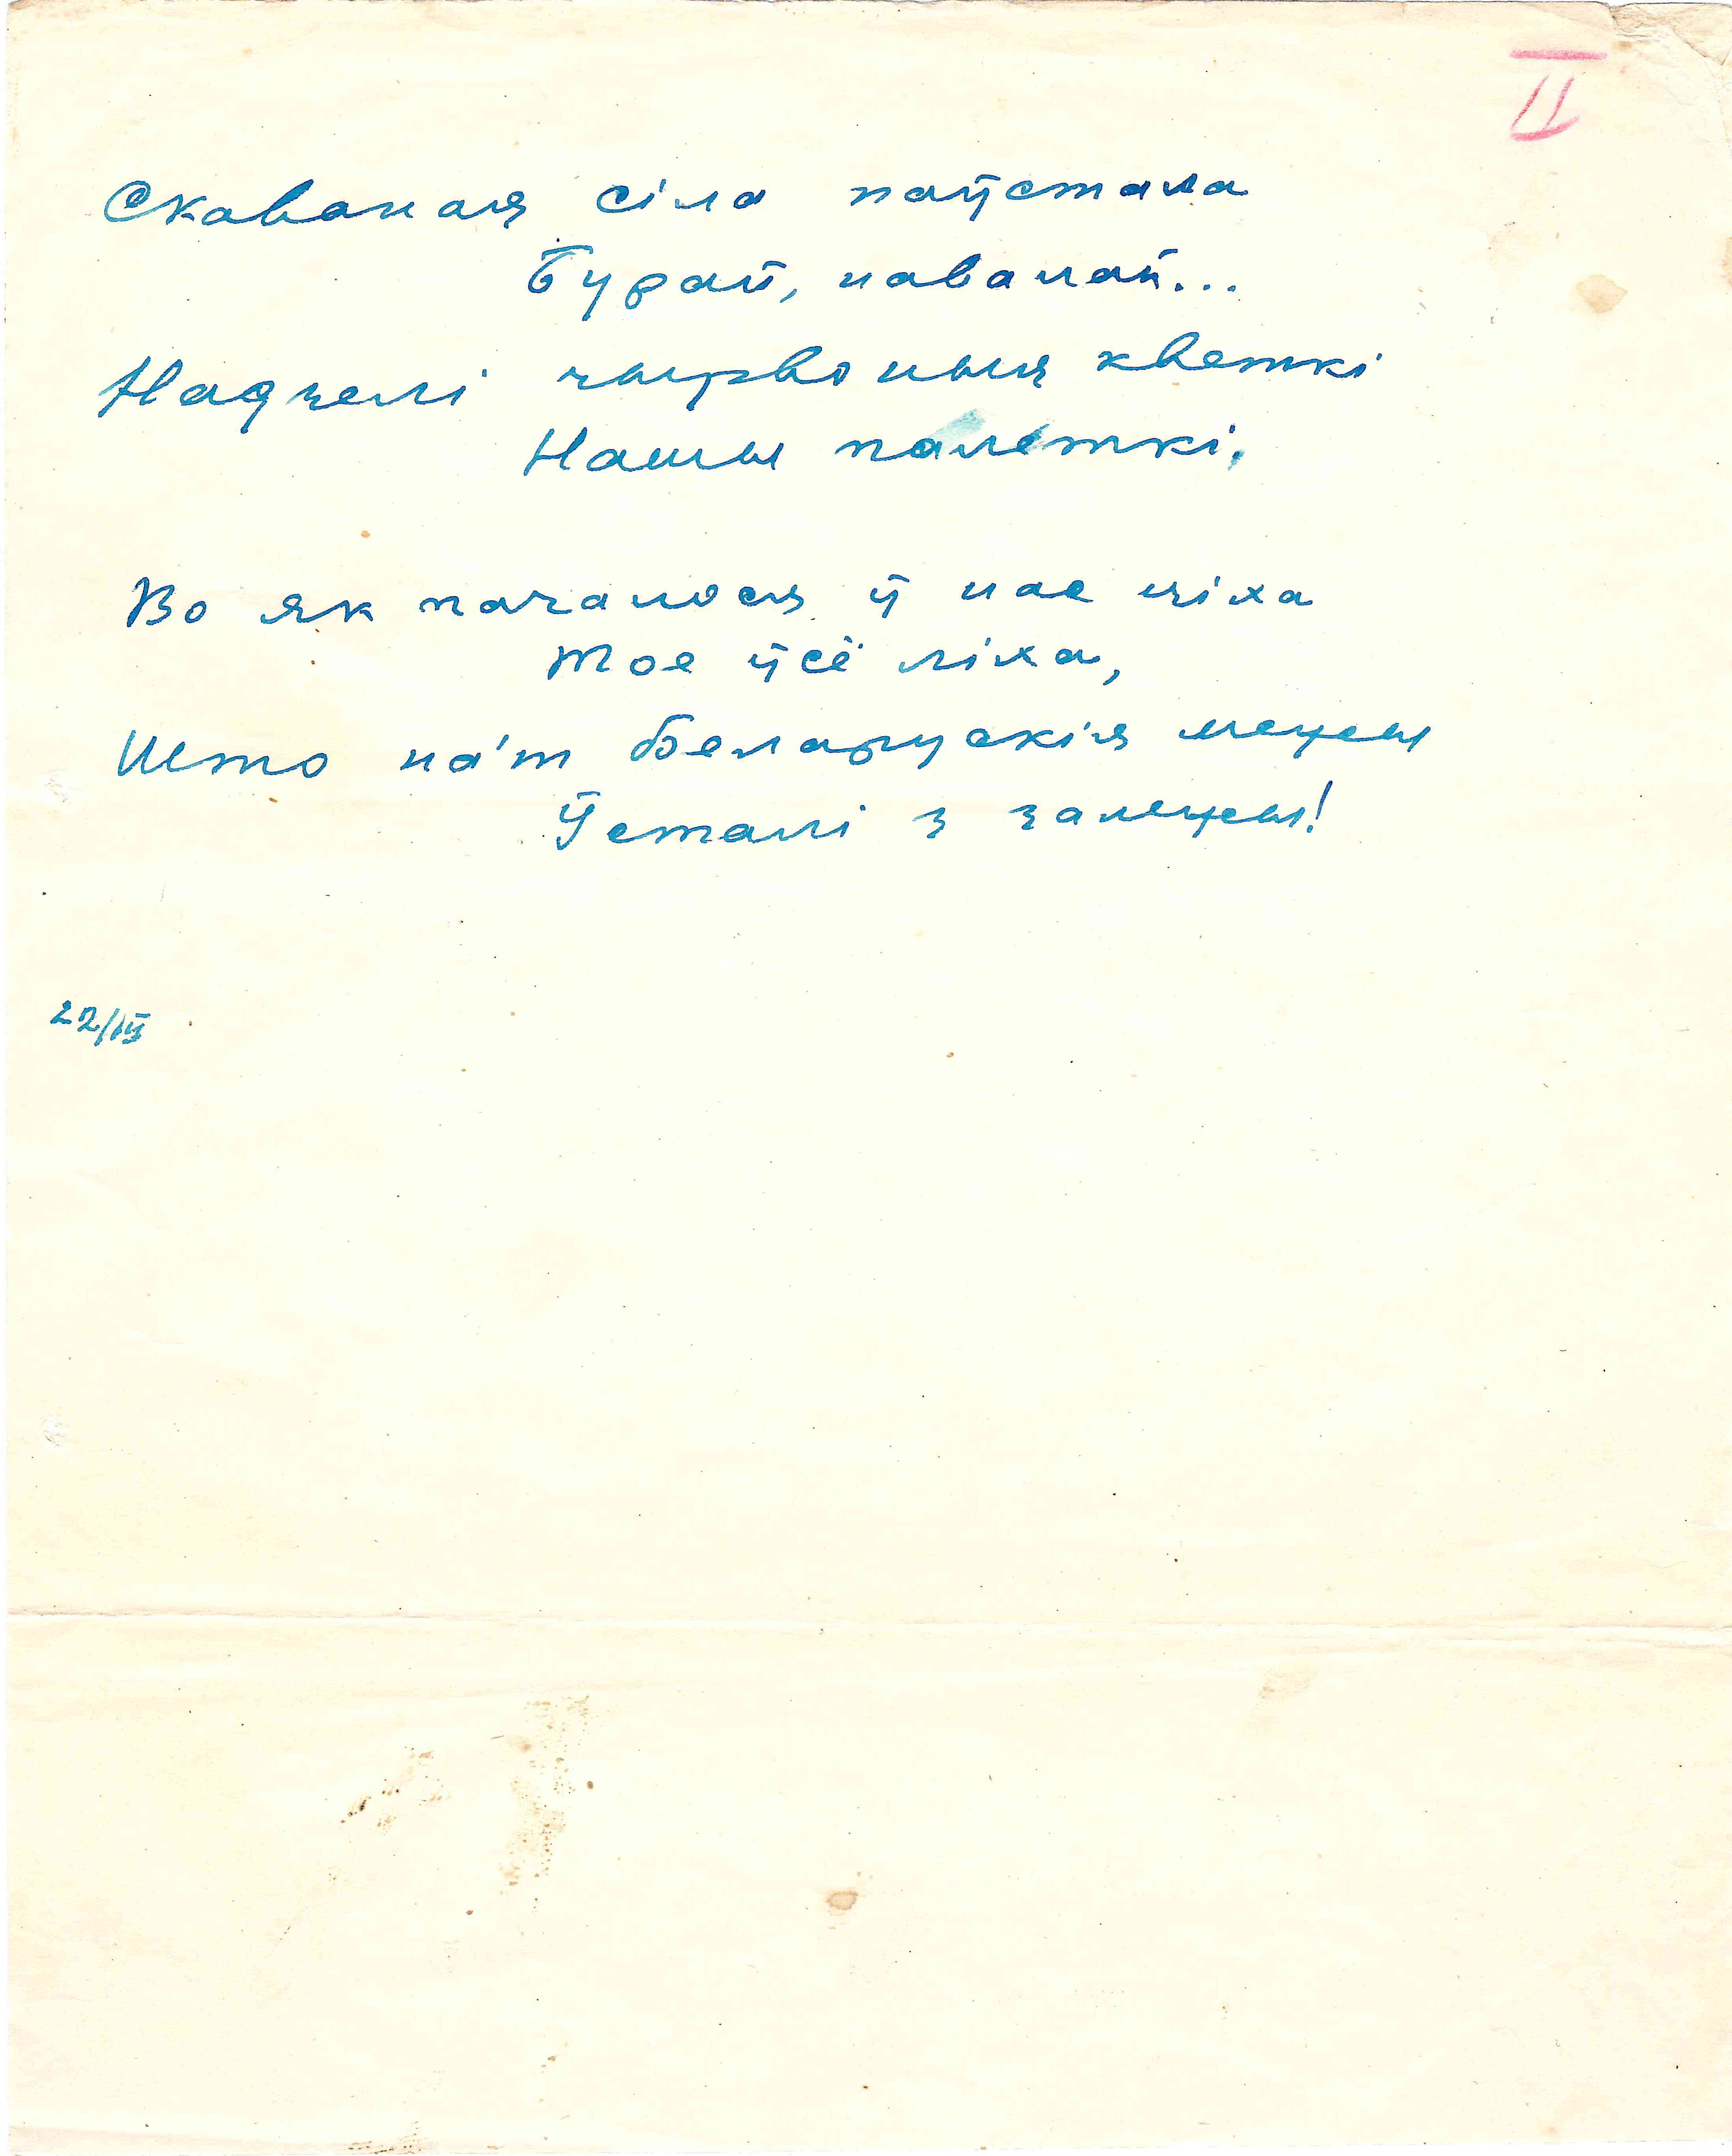 II
Скаваная сіла паўстала
Бурай, навалай...
Надзелі чырвоныя кветкі
Нашы палеткі.
Во як пачалося ў нас ціха
Тое ўсё ліха,
Што на'т беларускія межы
Ўсталі з залежы!
22/IV